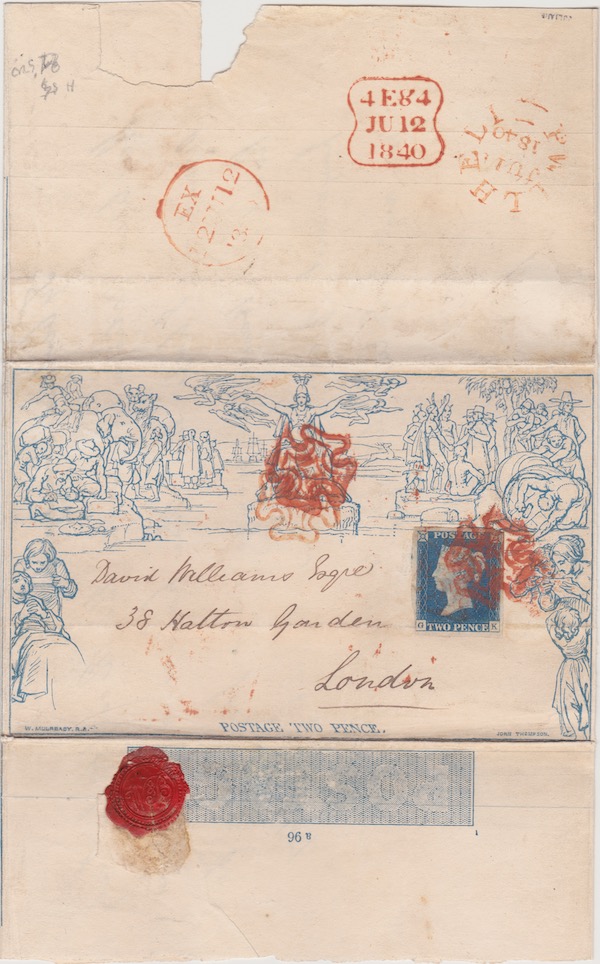 4 E 84
JU 12
1840
EX
JU 12
POSTAGE
TWO PENCE
G K
David Williams Esqre
38 Hatton Garden
London
W. MULREADY, R.A.
POSTAGE TWO PENCE.
JOHN THOMPSON.
POSTAGE
96